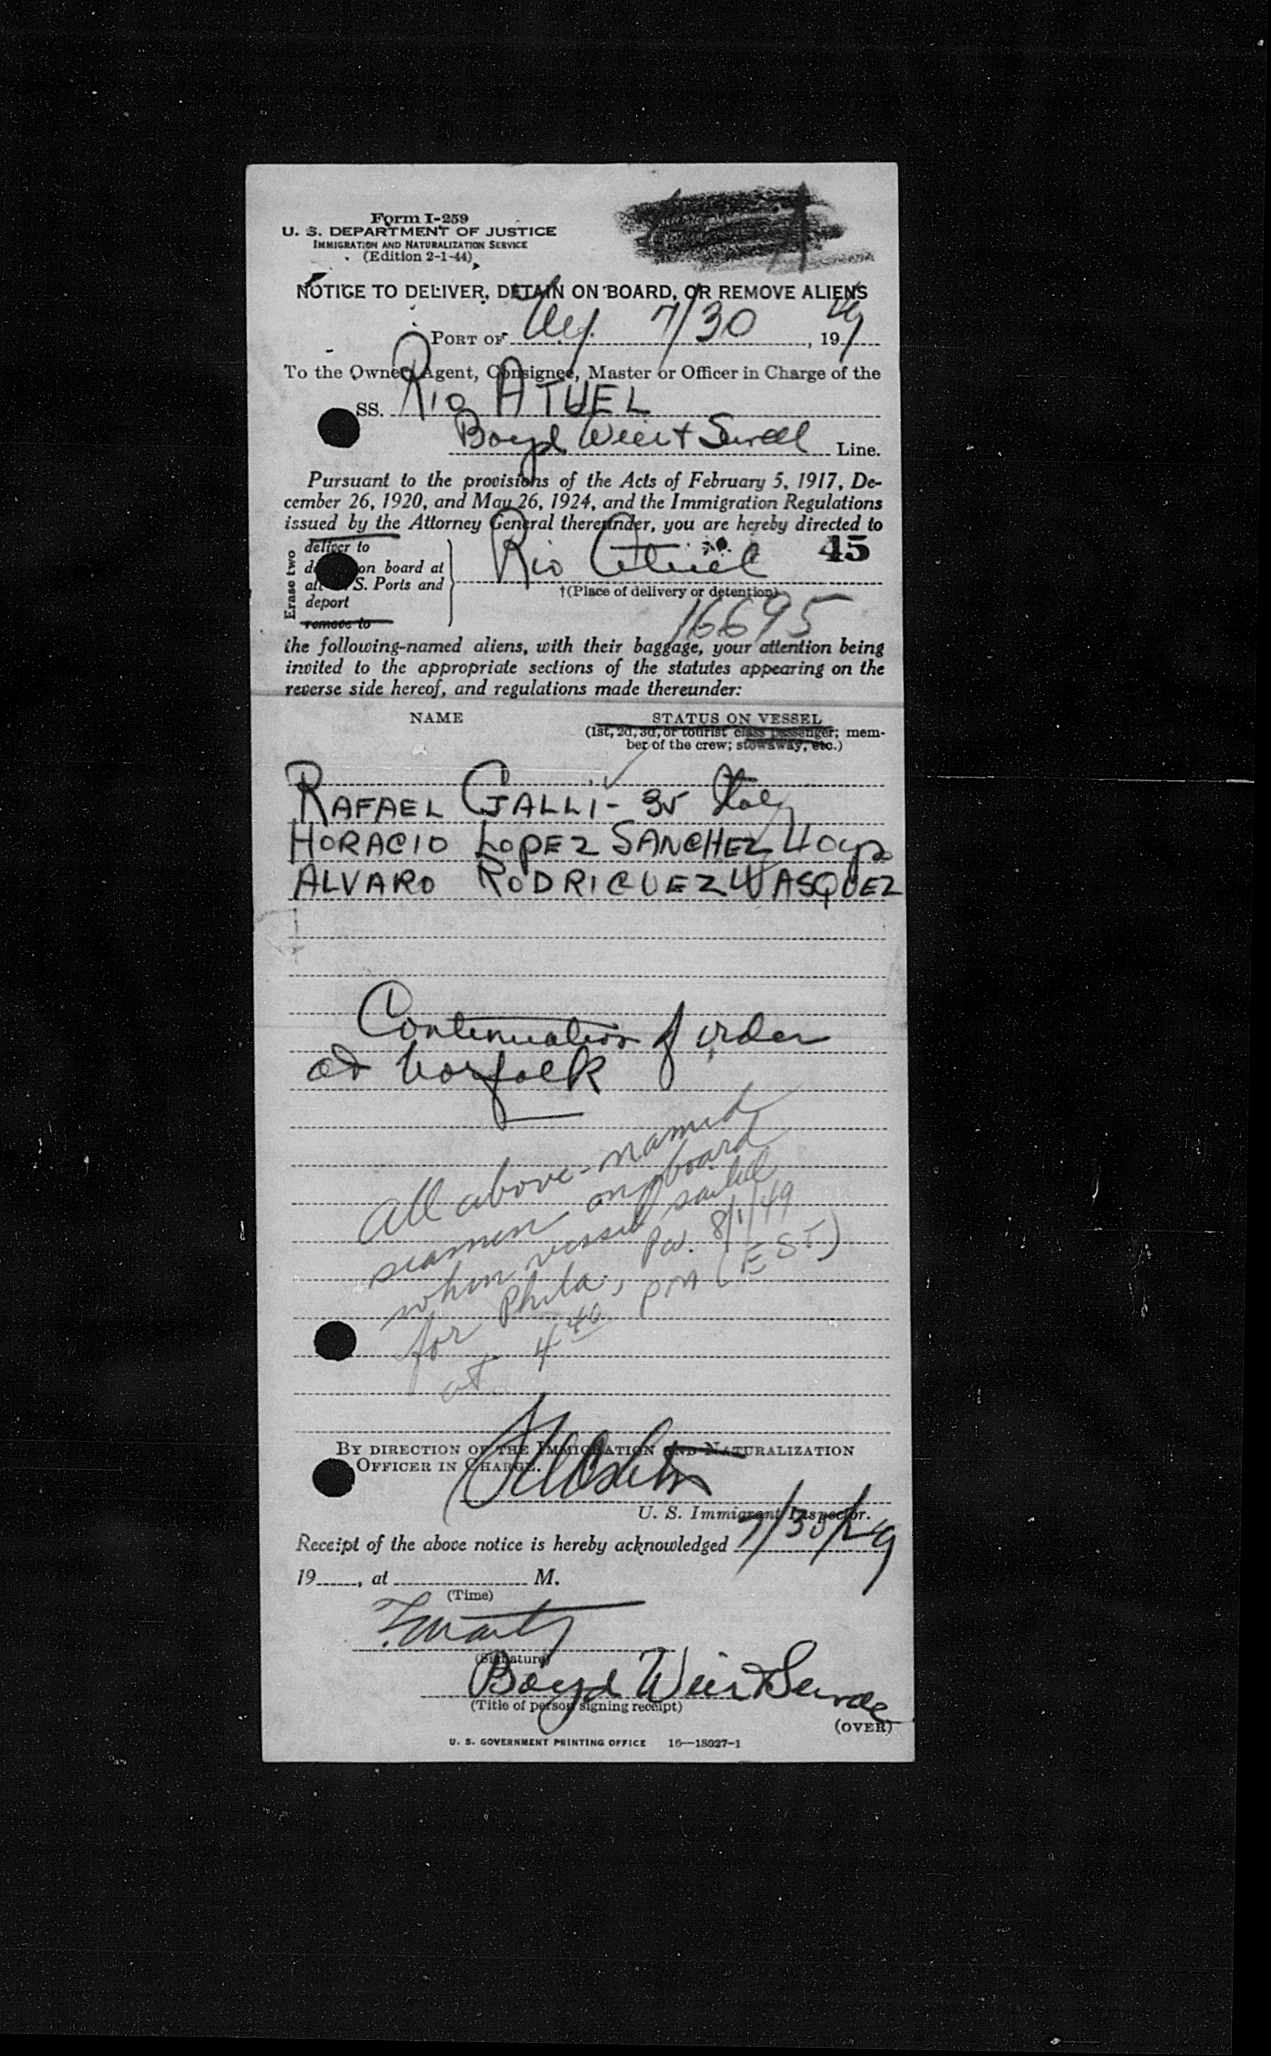 Form I-259
U. S. DEPARTMENT OF JUSTICE
IMMIGRATION AND NATURALIZATION SERVICE
(Edition 2-1-44)
NOTICE TO DELIVER, DETAIN ON BOARD, OR REMOVE ALIENS
PORT OF NY 7/30, 1949
To the Owner, Agent, Consignee, Master or Officer in Charge of the
SS. RIO ATUEL
Boyd Weir & Sewell Line.
Pursuant to the provisions of the Acts of February 5, 1917, De-
cember 26, 1920, and May 26, 1924, and the Immigration Regulations
issued by the Attorney General thereunder, you are hereby directed to
Erase two
deliver to
on board at
S. Ports and
deport
remove to
Rio Atuel 45
†(Place of delivery or detention)
16695
the following-named aliens, with their baggage, your attention being
invited to the appropriate sections of the statutes appearing on the
reverse side hereof, and regulations made thereunder:
NAME STATUS ON VESSEL
(1st, 2d, 3d, or tourist class passenger; mem-
ber of the crew; stowaway, etc.)
RAFAEL GALLI - 35 Italy
HORACIO LOPEZ SANCHEZ
ALVARO RODRIGUEZ VASQUEZ
Continuation of order
at Norfolk
All above-named
seamen on board
when vessel sailed
for Phila., Pa. 8/1/49
at 4 40 PM (EST)
BY DIRECTION OF THE IMMIGRATION AND NATURALIZATION
OFFICER IN CHARGE.
U. S. Immigrant Inspector.
Receipt of the above notice is hereby acknowledged 7/30/49
19____, at ____ M.
(Time)
(Signature)
Boyd Weir & Sewell
(Title of person signing receipt)
(OVER)
U. S. GOVERNMENT PRINTING OFFICE 16—18027-1